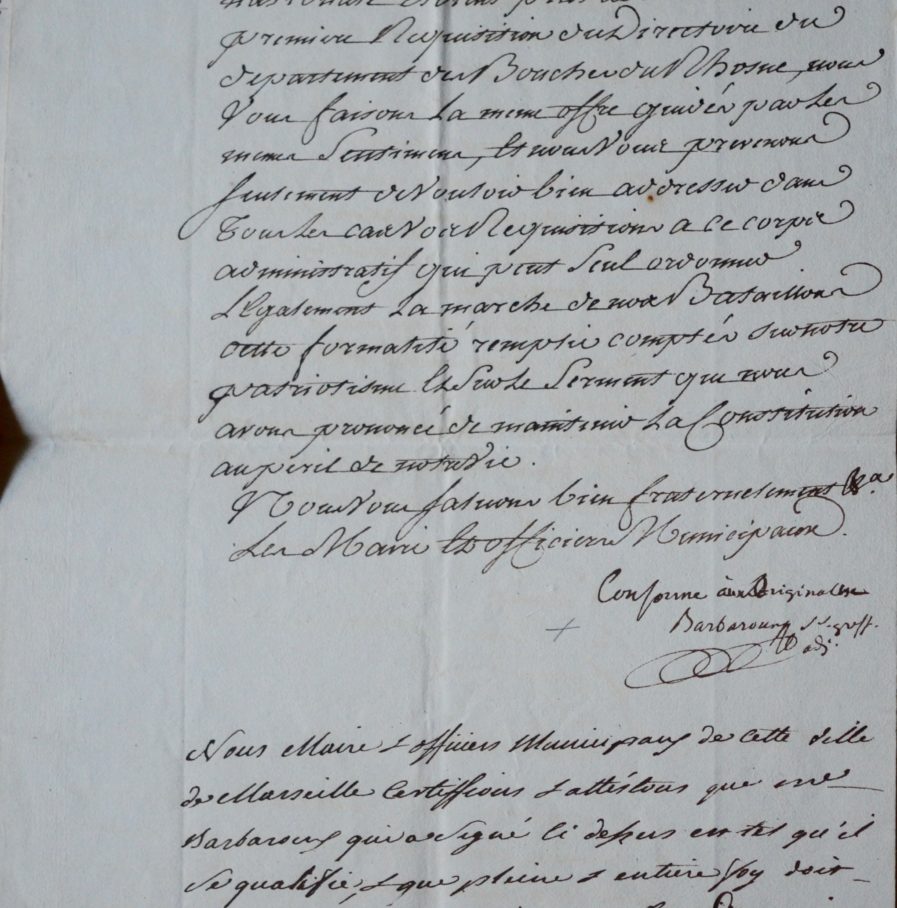 premiere Requisition du Directoire du
departement des Bouches du Rhosne, nous
Vous faisons La meme offre guidés par les
memes Sentimens, Et nous Vous prevenons
seulement de Vouloir bien addresser dans
Tous les cas Vos Requisitions a ce corps
administratif qui peut Seul ordonner
LEgalement La marche de nos Bataillons
cette formalité remplie comptés sur notre
patriotisme Et Sur le Serment que nous
avons prononcé de maintenir La Constitution
au peril de notre Vie.
Nous Vous saluons bien fraternellement
Les Maire Et officiers Municipaux.
Conforme aux Originaux
Barbaroux S.re greff.
adj.
Nous Maire & officiers Municipaux de cette ville
de Marseille Certiffions & attéstons que me
Barbaroux qui a Signé ci dessus est tel qu'il
se qualifie, & que pleine & entiere foy doit